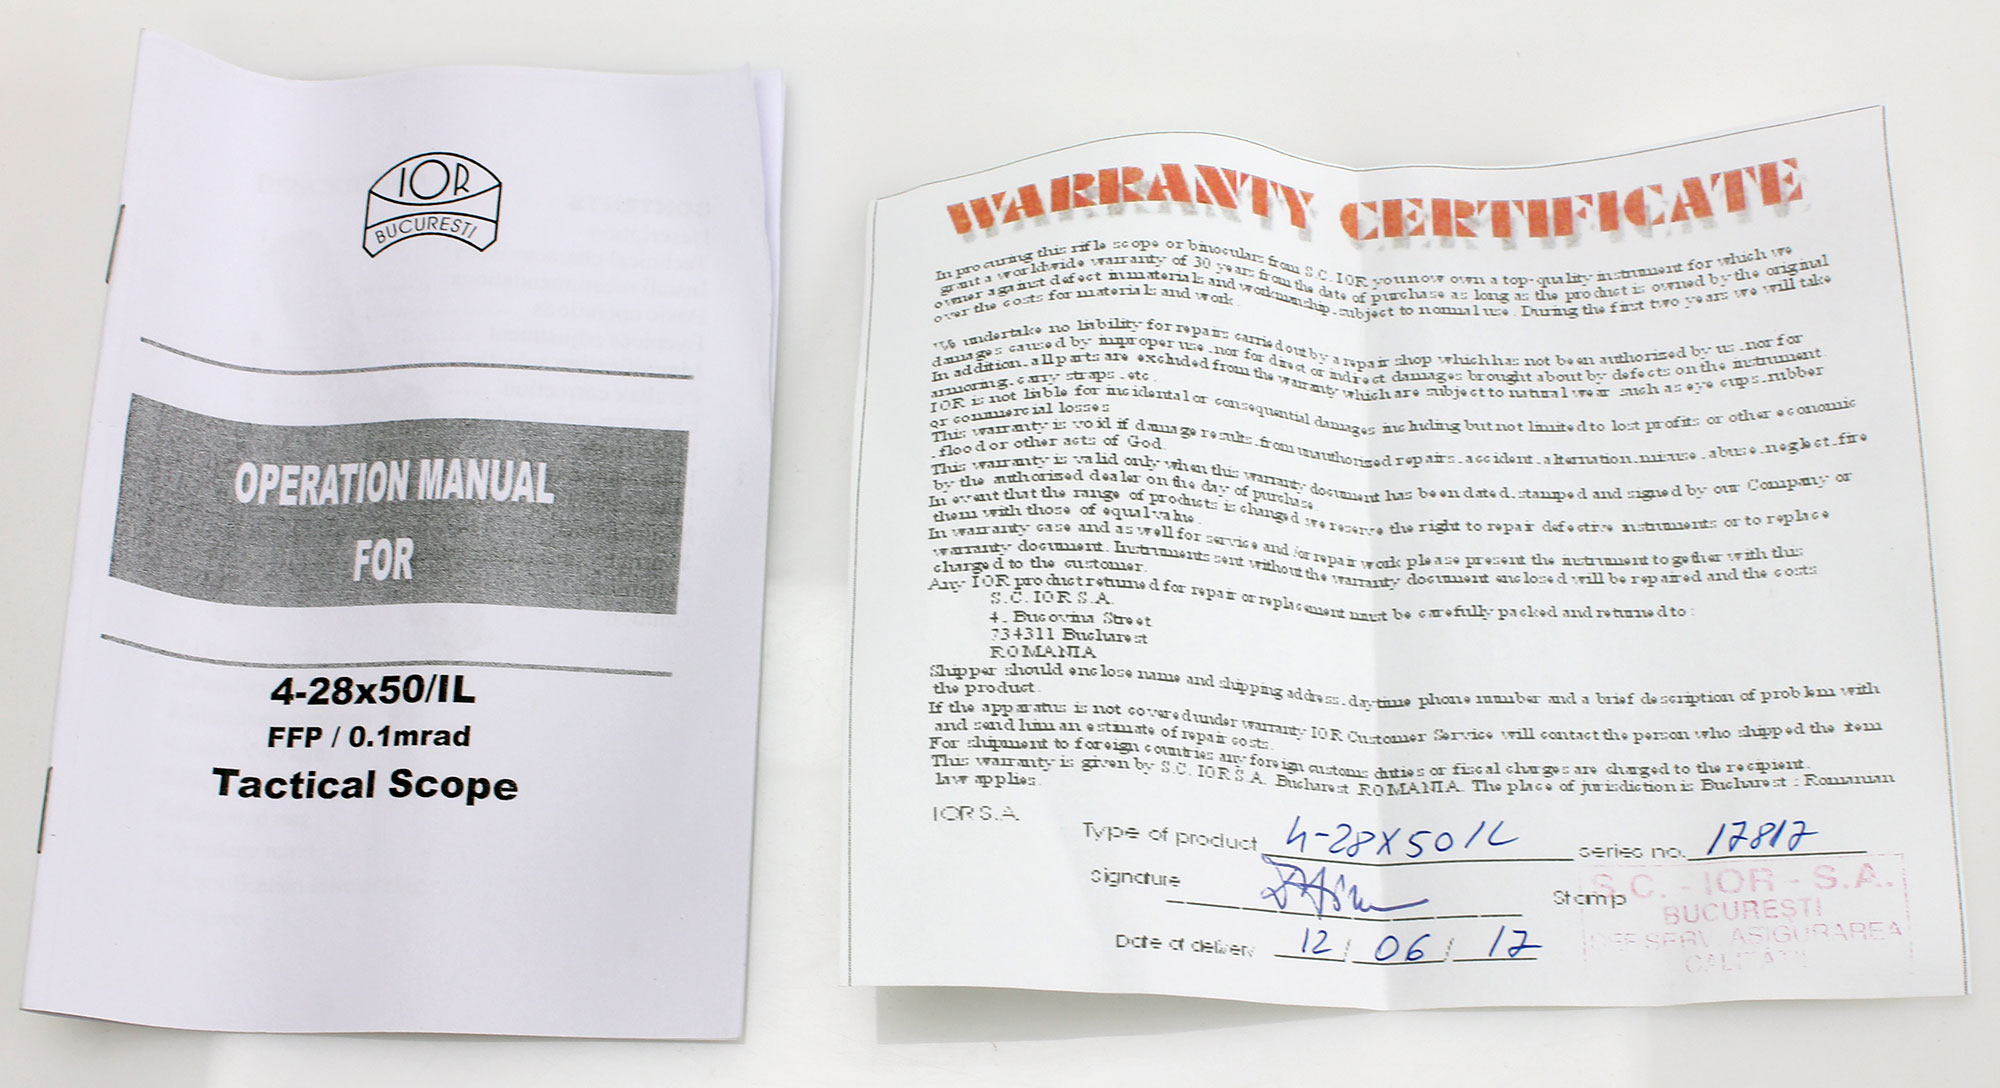 IOR
BUCURESTI
OPERATION MANUAL
FOR
4-28x50/IL
FFP / 0.1mrad
Tactical Scope
WARRANTY CERTIFICATE
In procuring this rifle scope or binoculars from S.C. IOR you now own a top-quality instrument for which we
grant a worldwide warranty of 30 years from the date of purchase as long as the product is owned by the original
owner against defect in materials and workmanship, subject to normal use. During the first two years we will take
over the costs for materials and work.
We undertake no liability for repairs carried out by a repair shop which has not been authorised by us, nor for
damages caused by improper use, nor for direct or indirect damages brought about by defects on the instrument.
In addition, all parts are excluded from the warranty which are subject to natural wear such as eye cups, rubber
armoring, carry straps, etc.
IOR is not liable for incidental or consequential damages including but not limited to lost profits or other economic
or commercial losses
This warranty is void if damage results, from unauthorised repairs, accident, alternation, misuse, abuse, neglect, fire
, flood or other acts of God.
This warranty is valid only when this warranty document has been dated, stamped and signed by our Company or
by the authorised dealer on the day of purchase.
In event that the range of products is changed we reserve the right to repair defective instruments or to replace
them with those of equal value.
In warranty case and as well for service and /or repair work please present the instrument together with this
warranty document. Instruments sent without the warranty document enclosed will be repaired and the costs
charged to the customer.
Any IOR product returned for repair or replacement must be carefully packed and returned to:
S.C. IOR S.A.
4, Bucovina Street
734311 Bucharest
ROMANIA
Shipper should enclose name and shipping address, daytime phone number and a brief description of problem with
the product.
If the apparatus is not covered under warranty IOR Customer Service will contact the person who shipped the item
and send him an estimate of repair costs.
For shipment to foreign countries any foreign customs duties or fiscal charges are charged to the recipient.
This warranty is given by S.C. IOR S.A. Bucharest ROMANIA. The place of jurisdiction is Bucharest : Romanian
law applies.
IOR S.A.
Type of product 4-28X50/IL series no. 17817
signature
Stamp
S.C. - IOR - S.A.
BUCUREȘTI
SERV. ASIGURAREA
CALITATII
Date of delivery 12 / 06 / 17